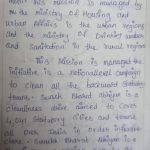 about this mission is managed by
the ministry of Housing and
Urban Affairs in the urban regions
and the ministry of Drinking water
and Sanitation in the rural regions
This Mission is managed the
initiative is a nationalized campaign
to clean all the backward Statutory
towns. Swachh Bharat Abhiyan is a
cleanliness drive aimed to cover
4,041 Statutory cities and towns
all over India in order
Swachh Bharat Abhiyan is a